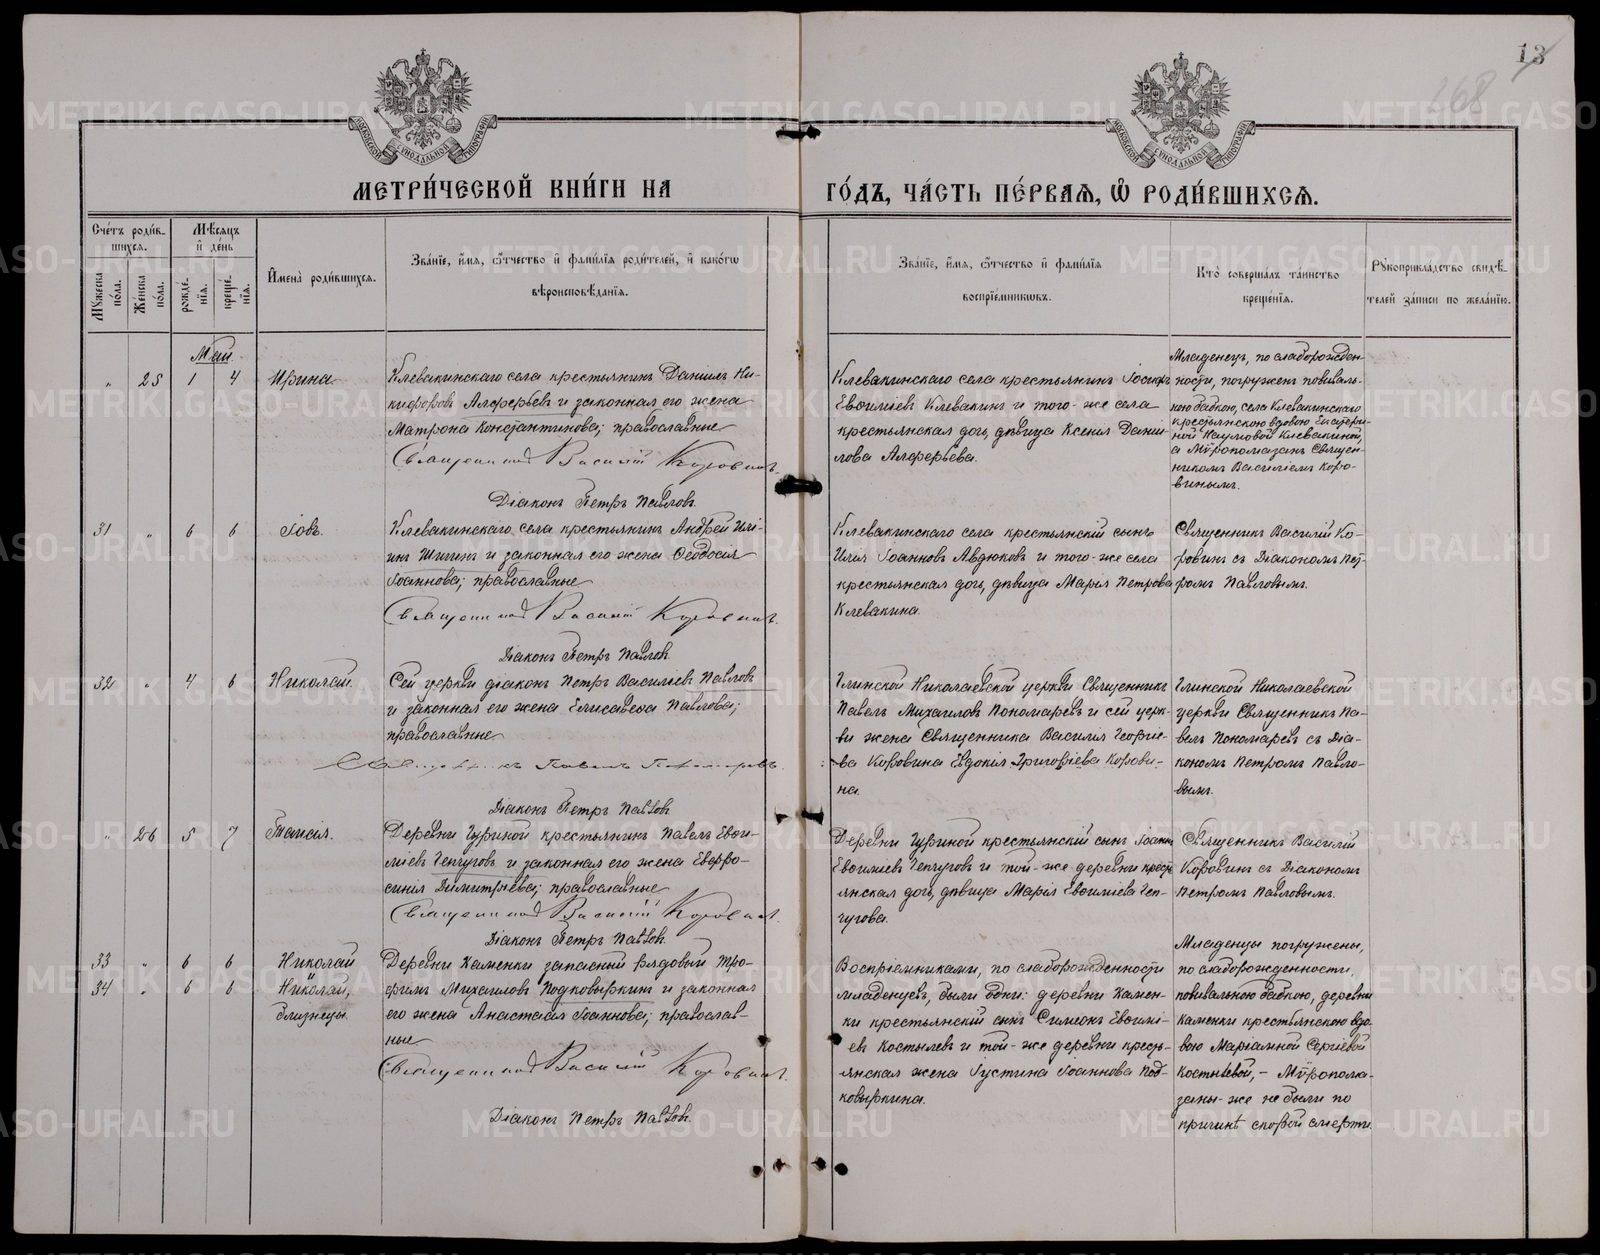 13
168
МЕТРИ́ЧЕСКОЙ КНИ́ГИ НА
ГО́ДЪ, ЧА́СТЬ ПЕ́РВАѦ, Ѡ҆ РОДИ́ВШИХСѦ.
Сче́тъ роди́в-
шихсѧ.
Мѣ́сяцъ
и҆ де́нь
Мꙋжеска по́ла.
Же́нска по́ла.
рожде́-
нїѧ.
креще́-
нїѧ.
И҆мена̀ роди́вшихсѧ.
Зва́нїе, и҆́мѧ, ѻ҆́тчество и҆ фамилїѧ роди́телей, и҆ како́гѡ
вѣроисповѣ́данїѧ.
Зва́нїе, и҆́мѧ, ѻ҆́тчество и҆ фами́лїѧ
воспрїе́мникѡвъ.
Кто̀ соверша́лъ та́инство
креще́нїѧ.
Рꙋкоприкла́дство свидѣ́-
телей за́писи по жела́нїю.
Май.
„ 25 1 4 Ирина
Клевакинскаго села крестьянинъ Даніилъ Ни-
кифоровъ Алферьевъ и законная его жена
Матрона Константинова; православные
Священникъ Василій Коровинъ.
Діаконъ Петръ Павловъ.
Клевакинскаго села крестьянинъ Іосифъ
Евѳиміевъ Клевакинъ и того-же села
крестьянская дочь, дѣвица Ксенія Дани-
лова Алферьева.
Младенецъ, по слаборожден-
ности, погруженъ повиваль-
ною бабкою, села Клевакинскаго
крестьянскою вдовою Екатери-
ной Наумовой Клевакиной,
а мѵропомазанъ Священ-
никомъ Василіемъ Коро-
винымъ.
31 „ 6 6 Іовъ.
Клевакинскаго села крестьянинъ Андрей Иль-
инъ Шигинъ и законная его жена Ѳеодосія
Іоаннова; православные
Священникъ Василій Коровинъ.
Діаконъ Петръ Павловъ.
Клевакинскаго села крестьянскій сынъ
Илія Іоанновъ Авдюковъ и того-же села
крестьянская дочь, дѣвица Марія Петрова
Клевакина.
Священникъ Василій Ко-
ровинъ съ Діакономъ Пет-
ромъ Павловымъ.
32 „ 4 6 Николай.
Сей церкви діаконъ Петръ Василіевъ Павловъ
и законная его жена Елисавеѳа Павлова;
православные
Священникъ Павелъ Пономаревъ.
Діаконъ Петръ Павловъ
Глинской Николаевской церкви Священникъ
Павелъ Михаиловъ Пономаревъ и сей церк-
ви жена Священника Василія Георгіе-
ва Коровина Евдокія Григоріева Корови-
на.
Глинской Николаевской
церкви Священникъ Па-
велъ Пономаревъ съ Діа-
кономъ Петромъ Павло-
вымъ.
„ 26 5 7 Таисія.
Деревни Гуриной крестьянинъ Павелъ Евѳи-
міевъ Гепчуговъ и законная его жена Евфро-
синія Димитріева; православные
Священникъ Василій Коровинъ.
Діаконъ Петръ Павловъ.
Деревни Гуриной крестьянскій сынъ Іоаннъ
Евѳиміевъ Гепчуговъ и той-же деревни крест-
янская дочь, дѣвица Марія Евѳиміева Геп-
чугова.
Священникъ Василій
Коровинъ съ Діакономъ
Петромъ Павловымъ.
33 „ 6 6 Николай
и
34 „ 6 6 Николай,
близнецы.
Деревни Каменки запасный рядовый Тро-
фимъ Михаиловъ Подковыркинъ и законная
его жена Анастасія Іоаннова; православ-
ные
Священникъ Василій Коровинъ.
Діаконъ Петръ Павловъ.
Воспріемниками, по слаборожденности
младенцевъ, были одни: деревни Камен-
ки крестьянскій сынъ Симеонъ Евѳимі-
евъ Костылевъ и той-же деревни кресть-
янская жена Іустина Іоаннова Под-
ковыркина.
Младенцы погружены,
по слаборожденности,
повивальною бабкою, деревни
Каменки крестьянскою вдо-
вою Маріамной Сергіевой
Костылевой, – Мѵропома-
заны-же не были по
причинѣ скорой смерти.
METRIKI.GASO-URAL.RU